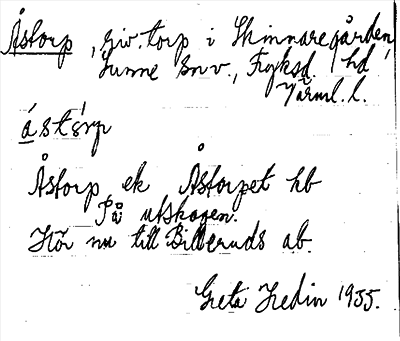 Åstorp, riv. torp i Skinnaregården,
Sunne snv., Fryksd. hd
Värml. l.
ástórp
Åstorp ek Åstorpet hb
På utskogen.
Hör nu till Billeruds ab.
Greta Hedin 1955.